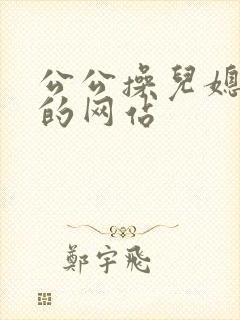 公公操兒媳
的网站
鄭宇飛